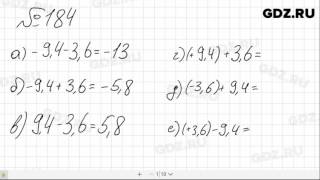 GDZ.RU
№184
а) -9,4-3,6=-13
б) -9,4+3,6=-5,8
в) 9,4-3,6=5,8
г) (+9,4)+3,6=
д) (-3,6)+9,4=
е) (+3,6)-9,4=
GDZ.RU